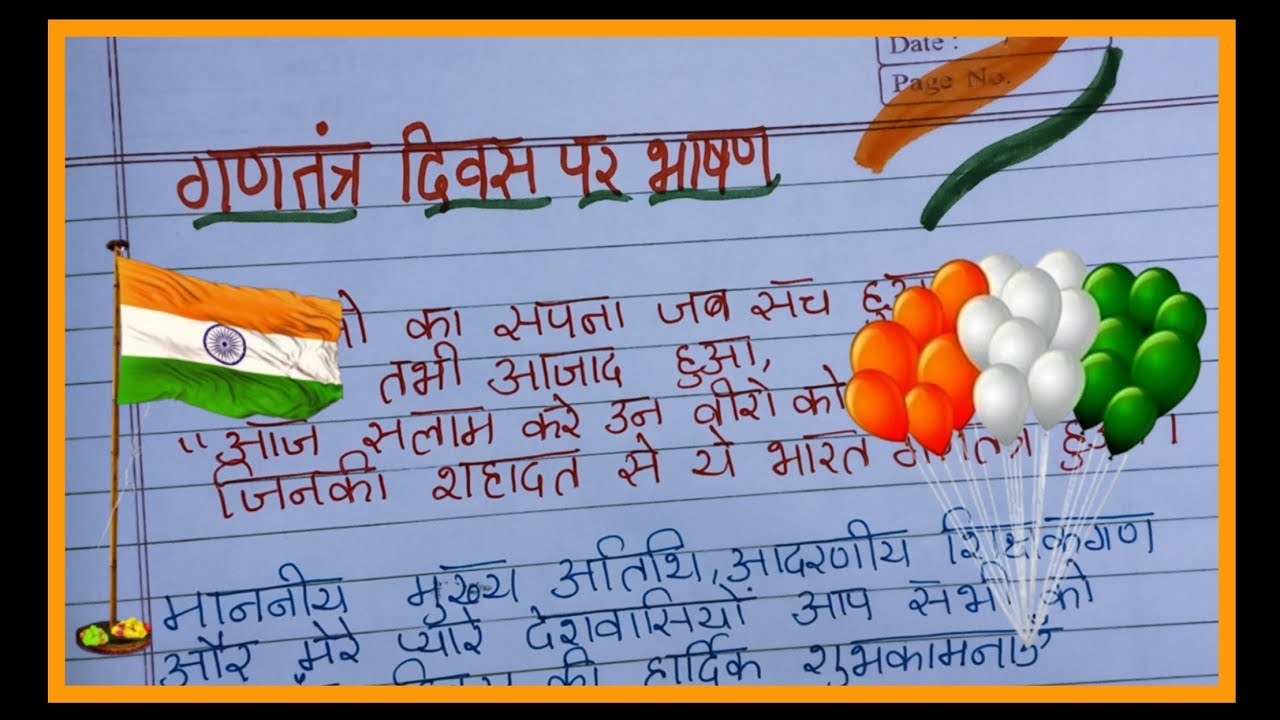 Date :
Page No.
गणतंत्र दिवस पर भाषण
का सपना जब सच हुआ
तभी आजाद हुआ,
"आज सलाम करे उन वीरो को
जिनकी शहादत से ये भारत गणतंत्र हुआ।
माननीय मुख्य अतिथि, आदरणीय शिक्षकगण
और मेरे प्यारे देशवासियों आप सभी को
दिवस की हार्दिक शुभकामनाएँ